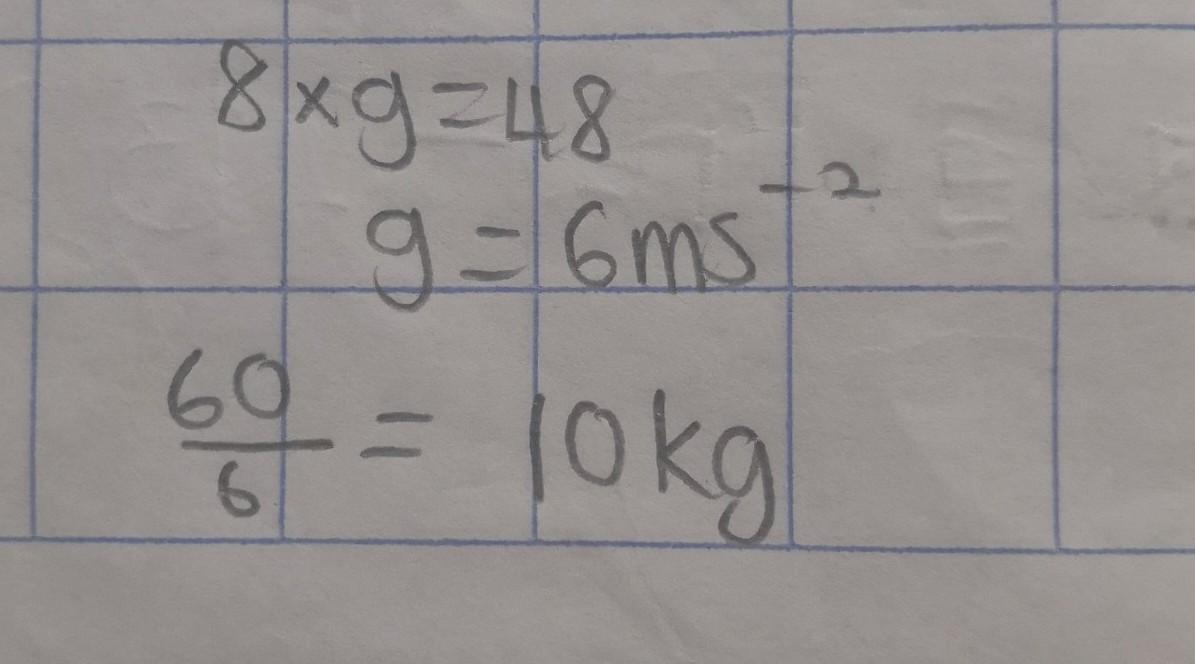 8×g=48
g = 6ms⁻²
60/6 = 10kg